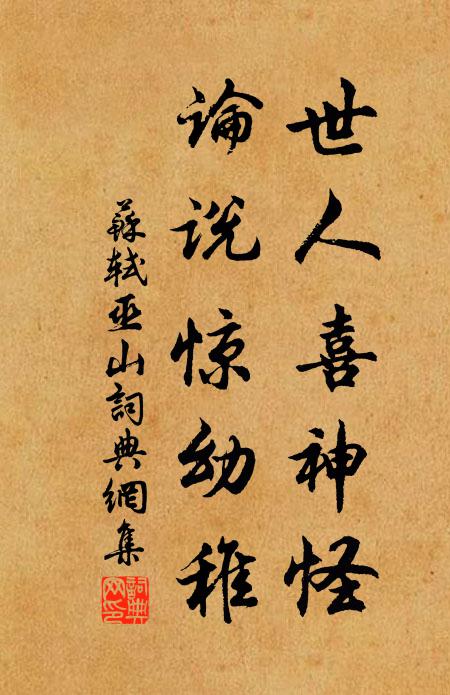 世人喜神怪
論说惊幼稚
蘇軾巫山詞典網集
詞典網印